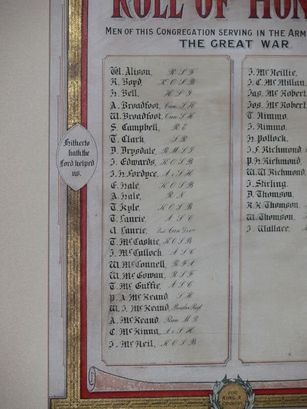 ROLL OF HON
MEN OF THIS CONGREGATION SERVING IN THE ARM
THE GREAT WAR.
Hitherto
hath the
Lord helped
us.
W. Alison, R S F
R. Boyd, K O S B
A. Broadfoot,
W. Broadfoot,
S. Campbell, R E
T. Clark,
D. Drysdale,
J. Edwards, K O S B
J. H. Fordyce, A & S H
E. Hale, K O S B
A. Hale,
T. Kyle, K O S B
T. Laurie, A S C
A. Laurie,
T. McCaskie, K O S B
J. McCulloch, A S C
W. McConnell, R F A
W. McGowan, R S F
T. McGuffie, A S C
P. A. McKeand
W. J. McKeand, Border Regt
A. McKeand,
C. McKinna, A & S H
J. McNeil, K O S B
J. McNeillie,
J. C. McMillan,
Jas. McRobert
Jos. McRobert
T. Nimmo,
J. Nimmo,
H. Pollock,
J. F. Richmond
P. H. Richmond,
W. W. Richmond
J. Stirling,
D. Thomson,
Thomson,
W. Thomson,
J. Wallace,
FOR
KING &
COUNTRY